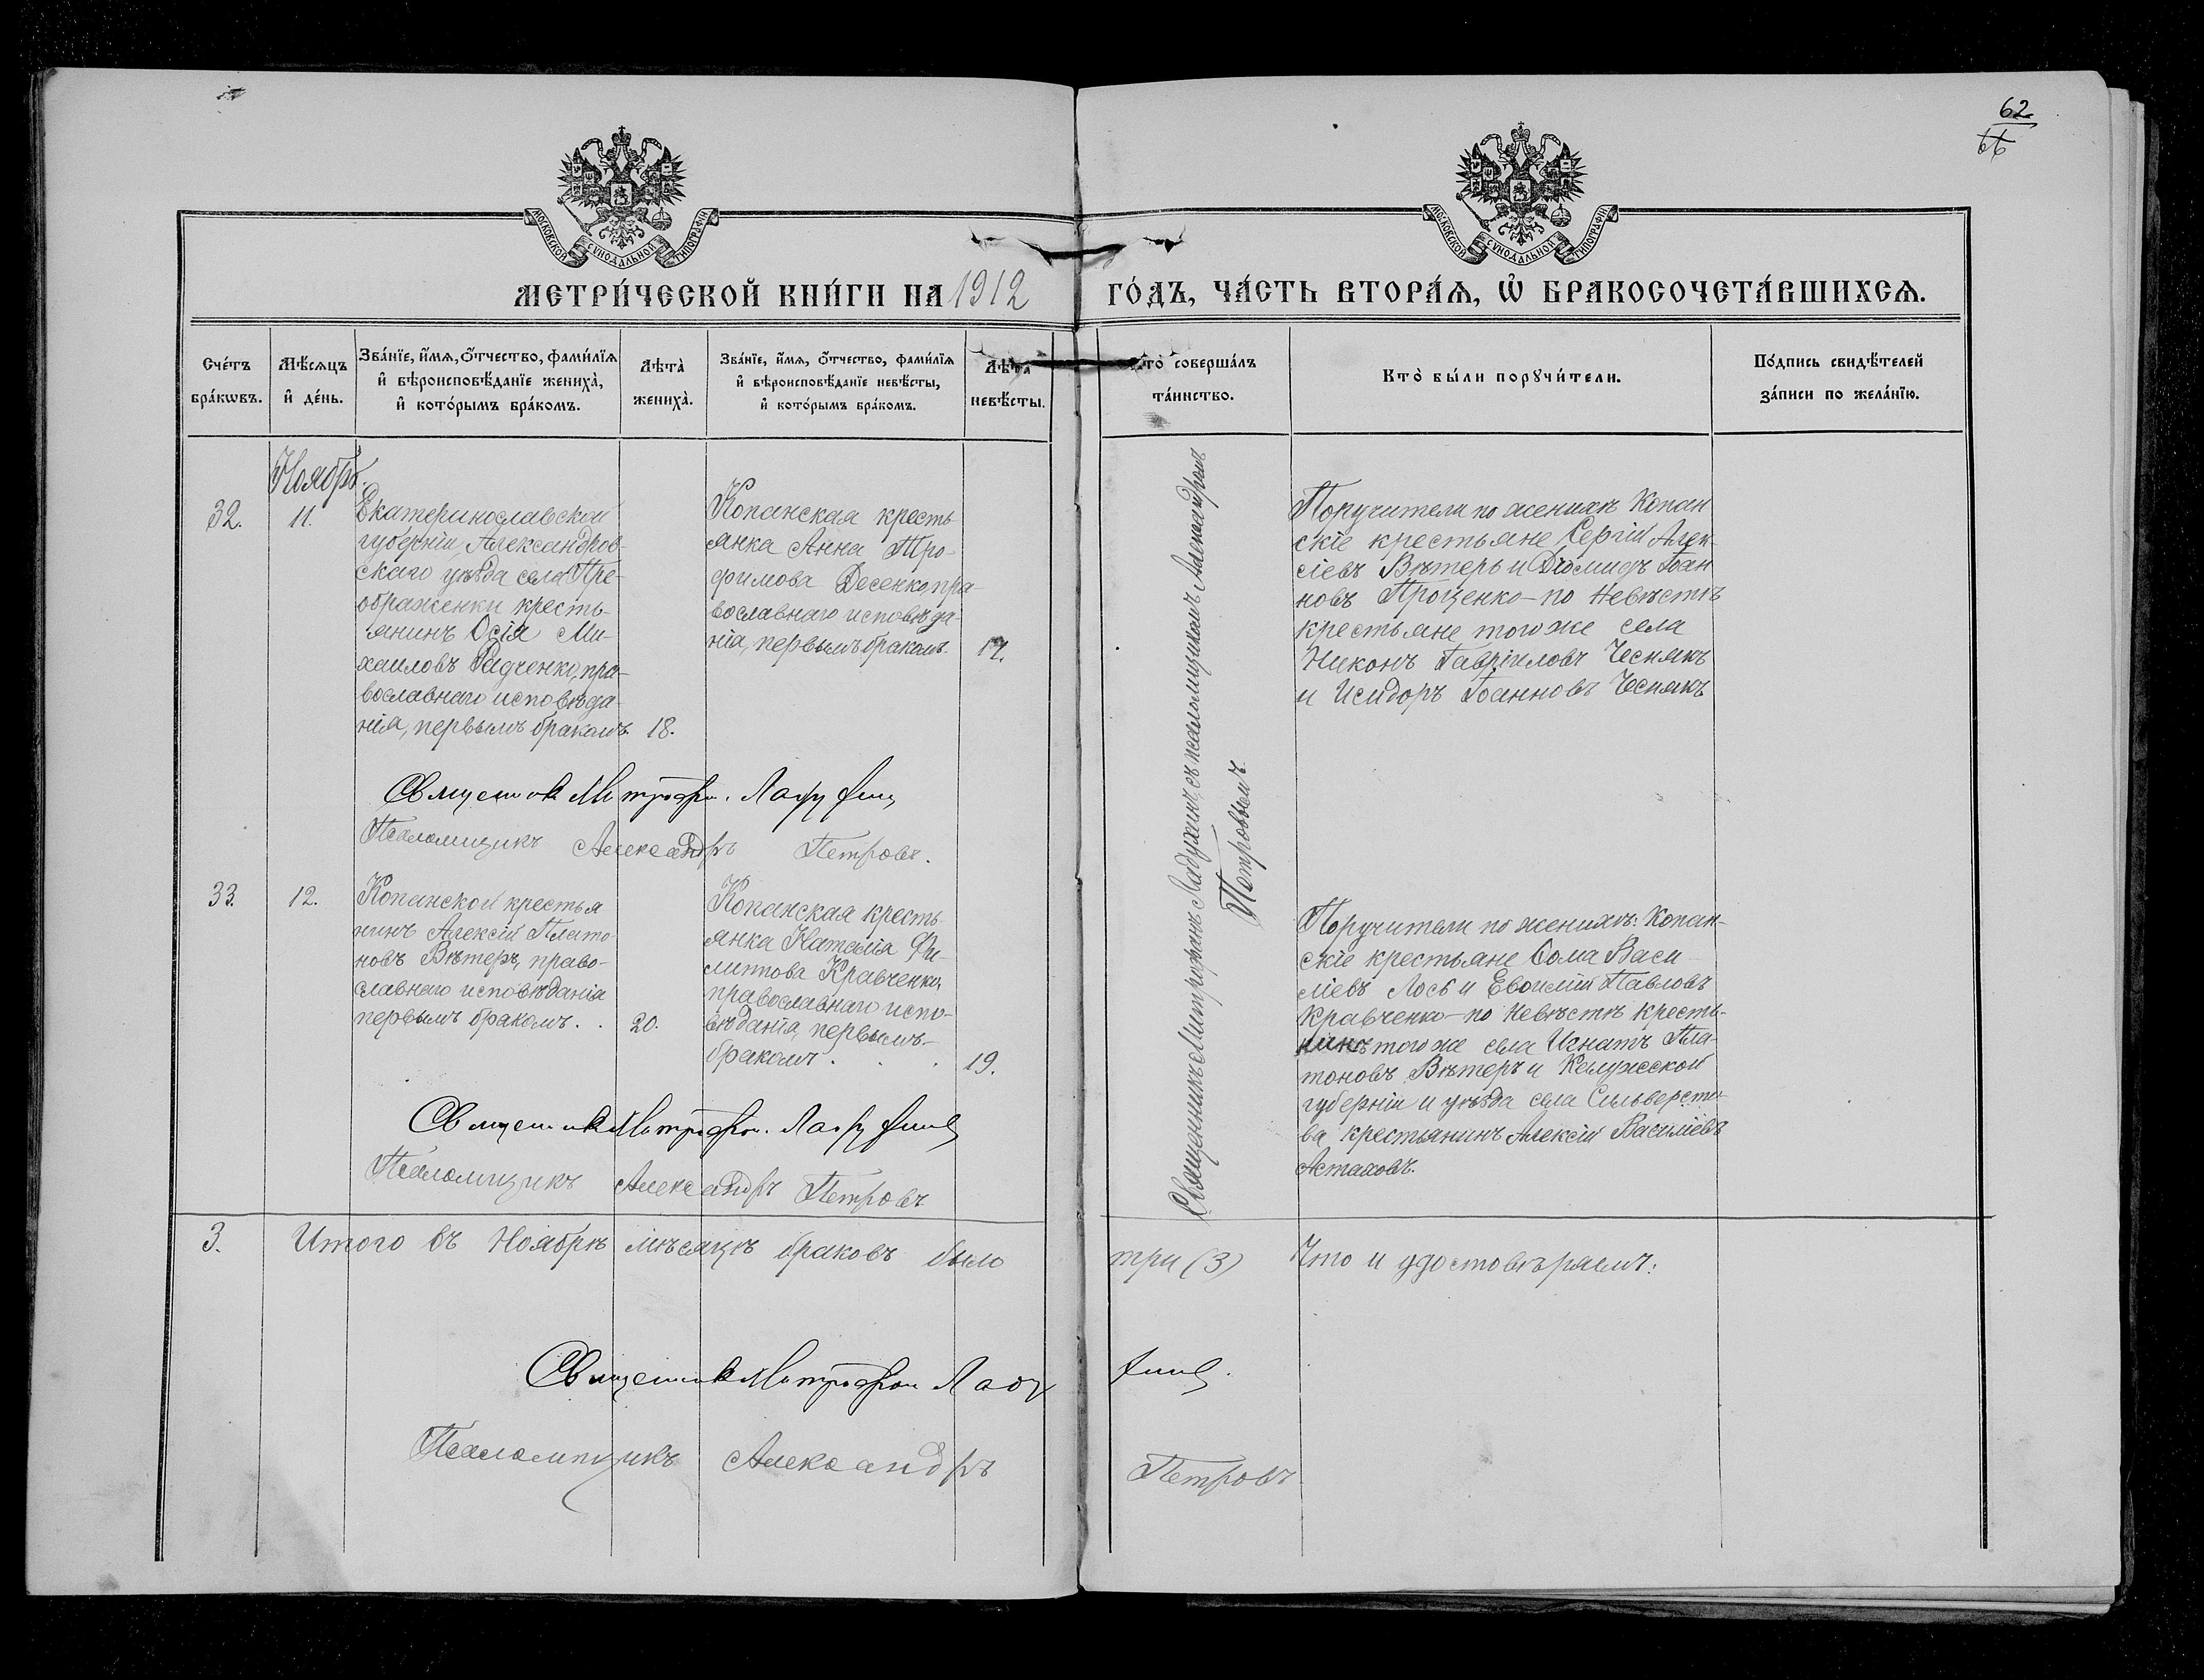 62
66
МОСКОВСКОЙ СѴНОДАЛЬНОЙ ТИПОГРАФІИ
МОСКОВСКОЙ СѴНОДАЛЬНОЙ ТИПОГРАФІИ
МЕТРИ́ЧЕСКОЙ КНИ́ГИ НА 1912 ГО́ДЪ, ЧА́СТЬ ВТОРА́Ѧ, Ѡ҆ БРАКОСОЧЕТА́ВШИХСѦ.
Сче́тъ
бра́кѡвъ.
Мѣ́сѧцъ
и҆ де́нь.
Зва́нїе, и҆́мѧ, о҆́тчество, фами́лїѧ
и҆ вѣроисповѣ́данїе жениха̀,
и҆ кото́рымъ бра́комъ.
Лѣта̀
жениха̀.
Зва́нїе, и҆́мѧ, о҆́тчество, фами́лїѧ
и҆ вѣроисповѣ́данїе невѣ́сты,
и҆ кото́рымъ бра́комъ.
Лѣта̀
невѣ́сты.
Кто̀ соверша́лъ
та́инство.
Кто̀ бы́ли порꙋчи́тели.
По́дпись свидѣ́телей
за́писи по жела́нїю.
Ноябрь.
32.
11.
Екатеринославской
губерніи, Александров-
скаго уѣзда села Пре-
ображенки кресть-
янинъ Осія Ми-
хаиловъ Радченко, пра-
вославнаго исповѣда-
нія, первымъ бракомъ
18.
Копанская кресть-
янка Анна Тро-
фимова Десенко, пра-
вославнаго исповѣда-
нія, первымъ бракомъ.
17.
Священникъ Митрофанъ Ладухинъ, съ псаломщикомъ Александромъ
Петровымъ.
Поручители по женихѣ Копан
скіе крестьяне Сергій Алек
сіевъ Вѣтеръ и Діомидъ Іоан
новъ Проценко - по Невѣстѣ
крестьяне того же села
Никонъ Гавріиловъ Чеснякъ
и Исидоръ Іоанновъ Чеснякъ
Священник Митрофан
Псаломщикъ Александръ Петровъ.
33.
12.
Копанской крестья
нинъ Алексій Плато-
новъ Вѣтеръ, право-
славнаго исповѣданія
первымъ бракомъ. .
20.
Копанская кресть
янка Наталія Фи-
липпова Кравченко,
православнаго испо-
вѣданія, первымъ-
бракомъ . . .
19.
Поручители по женихѣ: Копан-
скіе крестьяне Ѳома Васи
ліевъ Лось и Евѳимій Павловъ
Кравченко - по Невѣстѣ кресть-
янинъ того же села Игнатъ Пла-
тоновъ Вѣтеръ и Калужской
губерніи и уѣзда села Сильверсто-
ва, крестьянинъ Алексій Василіевъ
Астаховъ.
Священник Митрофан
Псаломщикъ Александръ Петровъ
3. Итого въ Ноябрѣ мѣсяцѣ браковъ было три (3) Что и удостовѣряемъ:
Священник Митрофан
Псаломщикъ Александръ Петровъ